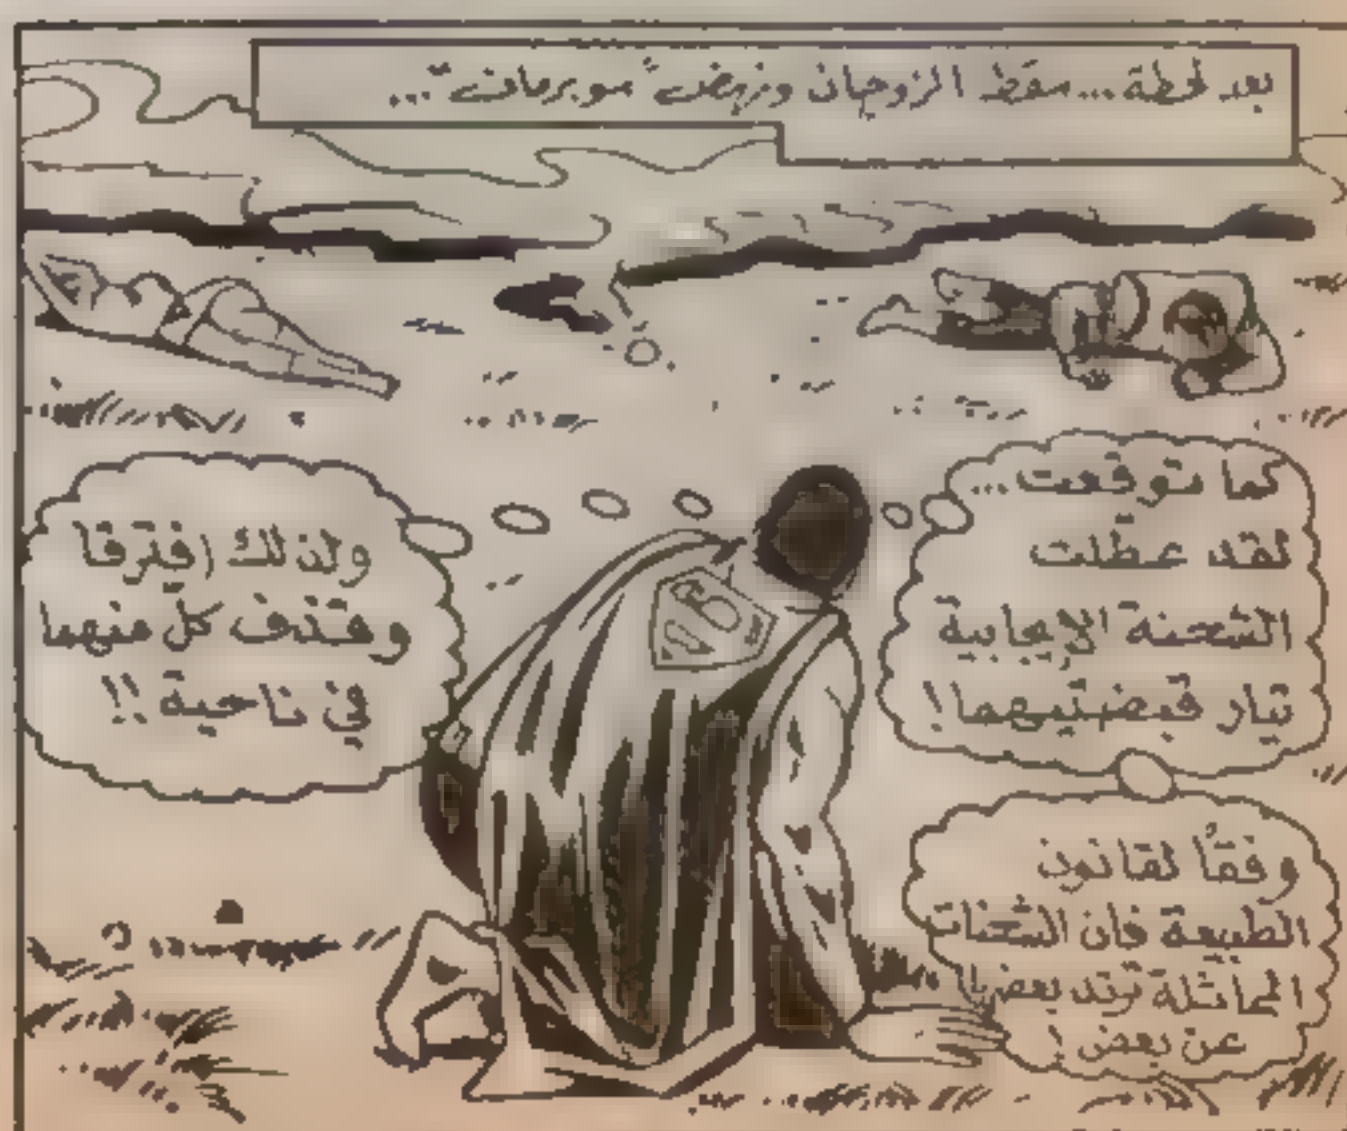 بعد لحظة... سقط الزوجان ونهض "سوبرمان"...
كما توقعت...
لقد عطلت
الشحنة الإيجابية
تيار قبضتيهما!
وفقًا لقانون
الطبيعة فان الشحنات
المماثلة ترتد بعضها
عن بعض!
ولذلك افترقا
وقذف كلّ منهما
في ناحية!!